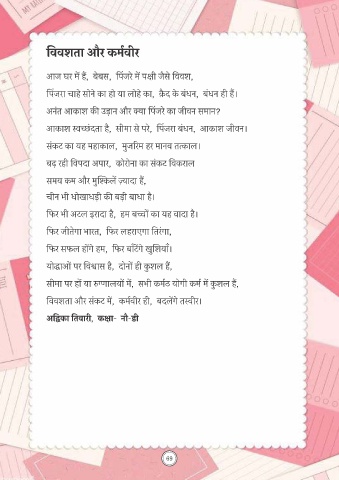 विवशता और कर्मवीर
आज घर में हैं, बेबस, पिंजरे में पक्षी जैसे विवश,
पिंजरा चाहे सोने का हो या लोहे का, क़ैद के बंधन, बंधन ही हैं।
अनंत आकाश की उड़ान और क्या पिंजरे का जीवन समान?
आकाश स्वच्छंदता है, सीमा से परे, पिंजरा बंधन, आकाश जीवन।
संकट का यह महाकाल, मुजरिम हर मानव तत्काल।
बढ़ रही विपदा अपार, कोरोना का संकट विकराल
समय कम और मुश्किलें ज़्यादा हैं,
चीन भी धोखाधड़ी की बड़ी बाधा है।
फिर भी अटल इरादा है, हम बच्चों का यह वादा है।
फिर जीतेगा भारत, फिर लहराएगा तिरंगा,
फिर सफल होंगे हम, फिर बटिंगे खुशियाँ।
योद्धाओं पर विश्वास है, दोनों ही कुशल हैं,
सीमा पर हों या रुग्णालयों में, सभी कर्मठ योगी कर्म में कुशल हैं,
विवशता और संकट में, कर्मवीर ही, बदलेंगे तस्वीर।
अद्विका तिवारी, कक्षा- नौ-डी
69